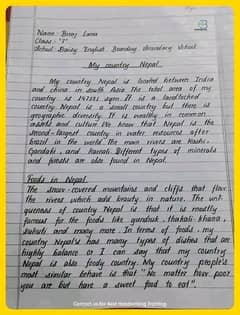 Name: Biraj Lama
Class: "7"
School: Daisy English Boarding Secondary School
My country Nepal
My country Nepal is located between India
and china in south Asia. The total area of my
country is 147181 sqm. It is a landlocked
country. Nepal is a small country but there is
geographic diversity. It is wealthy in common
assets and culture. We know that Nepal is the
second-largest country in water resources after
brazil in the world. The main rivers are Koshi,
Gandaki, and Karnali. Different types of minerals
and forests are also found in Nepal.
Foods in Nepal
The snow-covered mountains and cliffs that flow
the rivers which add beauty in nature. The uni-
queness of country Nepal is that it is mostly
famous for the foods like gundruk, thakali khana,
and many more. In terms of foods, my
country Nepal's has many types of dishes that are
highly balance or I can say that my country
Nepal is also foody country. My country people's
most similar behave is that "No matter how poor
you are but have a sweet food to eat".
Contact us for Best Handwriting Training